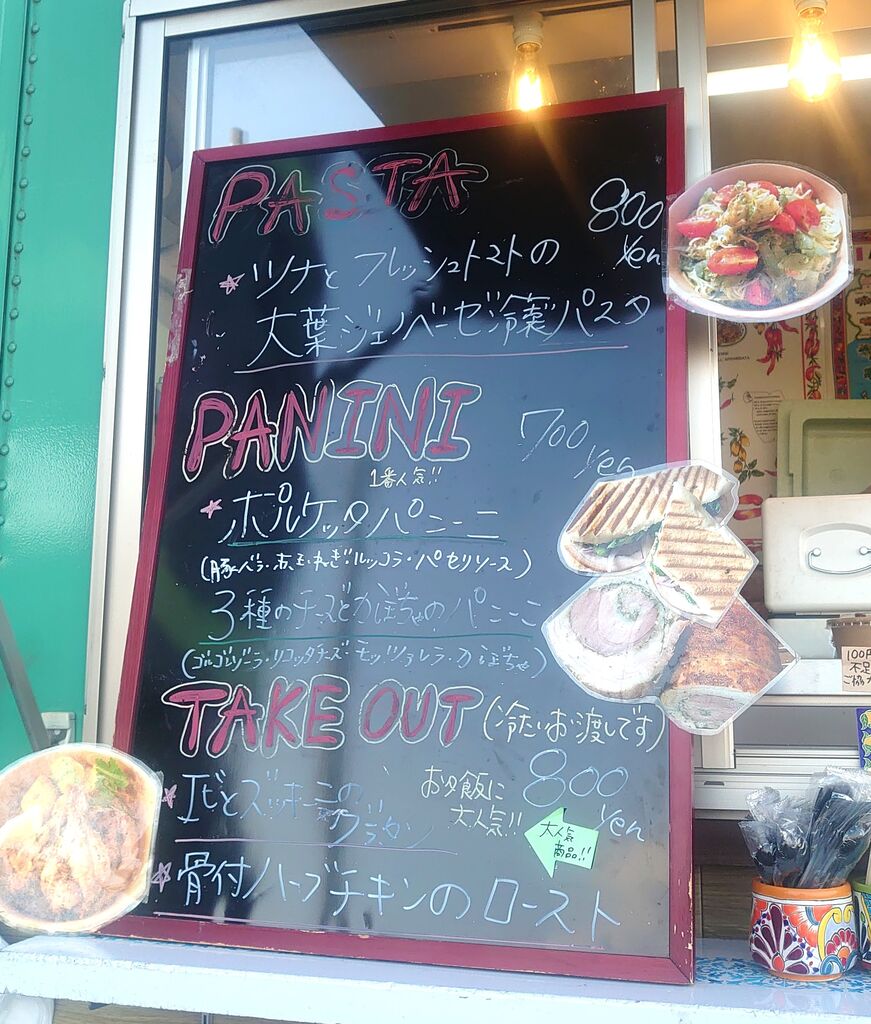 PASTA
800
yen
ツナとフレッシュトマトの
大葉ジェノベーゼ冷製パスタ
PANINI
700
yen
1番人気!!
ポルケッタパニーニ
(豚バラ・赤玉ねぎ・ルッコラ・パセリソース)
3種のチーズとかぼちゃのパニーニ
(ゴルゴンゾーラ・リコッタチーズ・モッツァレラ・かぼちゃ)
TAKE OUT (冷たいお渡しです)
エビとズッキーニの
グラタン
お夕飯に
大人気!!
800
yen
大人気
商品!!
骨付ハーブチキンのロースト
100円
不足
ご協力